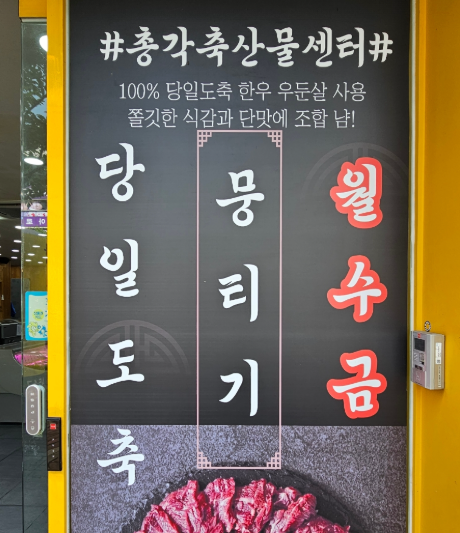 #총각축산물센터#
100% 당일도축 한우 우둔살 사용
쫄깃한 식감과 단맛에 조합 냠!
당일도축
뭉티기
월수금